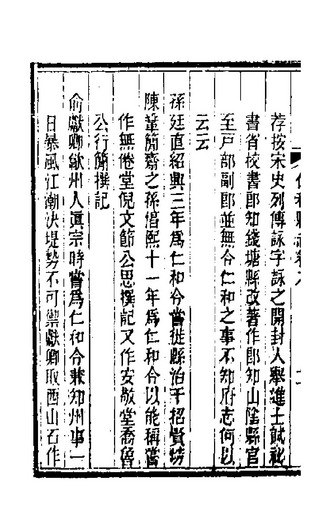 荐按宋史列傳詠字詠之開封人舉進士試祕
書省校書郎知錢塘縣改著作郎知山陰縣官
至戶部副郎並無令仁和之事不知府志何以
云云
孫廷直紹興三年爲仁和令嘗徙縣治于招賢坊
陳䈇簡齋之孫淳熙十一年爲仁和令以能稱嘗
作無倦堂倪文節公思撰記又作安敬堂喬魯
公行簡撰記
俞獻卿歙州人眞宗時嘗爲仁和令兼知州事一
日暴風江潮決堤勢不可禦獻卿取西山石作